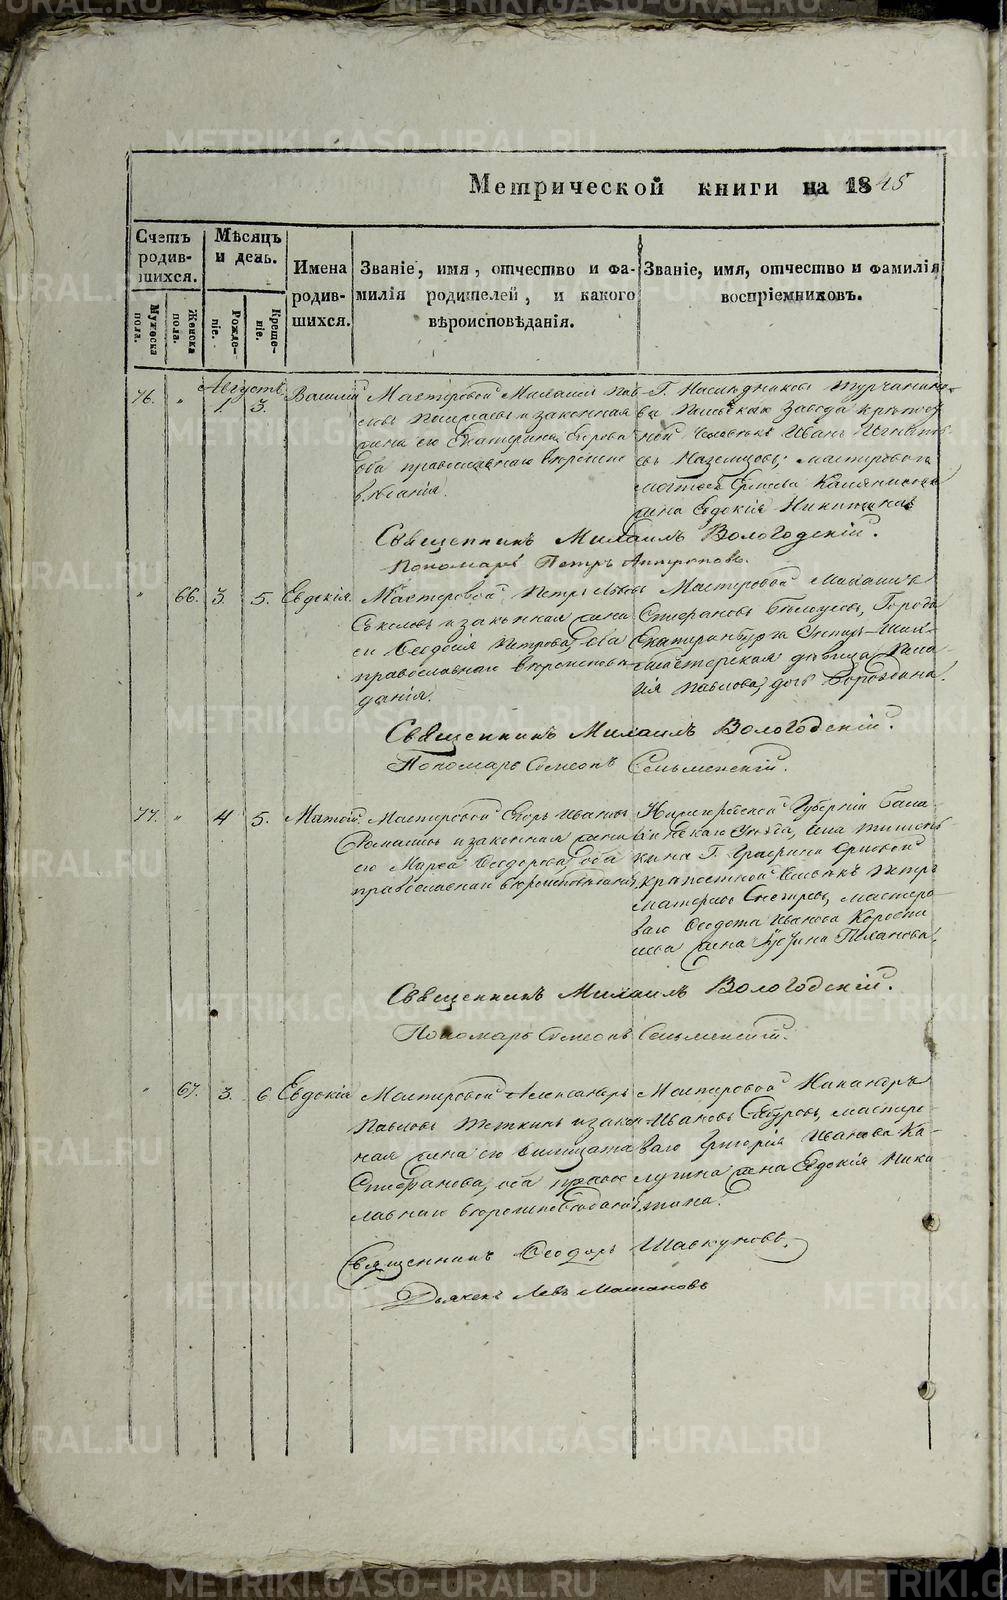 METRIKI.GASO-URAL.RU
Метрической книги на 1845
Счетъ родив-шихся.
Мужеска пола.
Женска пола.
Мѣсяцъ и день.
Рожде-ніе.
Креще-ніе.
Имена родив-шихся.
Званіе, имя, отчество и фа-милія родителей, и какого вѣроисповѣданія.
Званіе, имя, отчество и фамилія воспріемниковъ.
Августъ
76. " 1. 3. Василій
Мастеровой Михаилъ Пав-
ловъ и законная
жена его Екатерина Егорова
оба православнаго вѣроиспо
вѣданія.
Г. Наслѣдниковъ Турчанино-
ва завода крѣпост
ной человѣкъ Иванъ Игнатье
въ мастероваго
жена Евдокія Никитина
Священникъ Михаилъ Вологодскій.
Пономарь Петръ Антроповъ.
" 66. 3. 5. Евдокія.
Мастеровой Петръ Львовъ
Соколовъ и законная жена
его Ѳеодосія Петрова, оба
православнаго вѣроисповѣ
данія.
Мастеровой Михаилъ
Стефановъ Бѣлоусовъ, Города
Екатеринбурга Унтеръ-Шихт-
мейстерская дѣвица
Павлова дочь Бороздина.
Священникъ Михаилъ Вологодскій.
Пономарь Симеонъ Сельменскій.
77. " 4. 5. Матѳей.
Мастеровой Егоръ Ивановъ
Ромашовъ и законная жена
его Марѳа Ѳеодорова, оба
православнаго вѣроисповѣданія
Нижегородской Губерніи Бала-
хнинскаго Уѣзда, села
Г. Графини Орловой
крѣпостной человѣкъ Петръ
мастеро
ваго Ѳедота Иванова Корости
лева жена
Священникъ Михаилъ Вологодскій.
Пономарь Симеонъ Сельменскій.
" 67. 3. 6 Евдокія
Мастеровой Александръ
Павловъ Теткинъ и закон-
ная жена его Елисавета
Стефанова, оба правос
лавнаго вѣроисповѣданія
Мастеровой Никандръ
Ивановъ мастеро-
ваго Григорія Иванова Ка-
лугина жена Евдокія Ники
тина.
Священникъ Ѳеодоръ Шавкуновъ.
Дьячекъ Левъ Машановъ